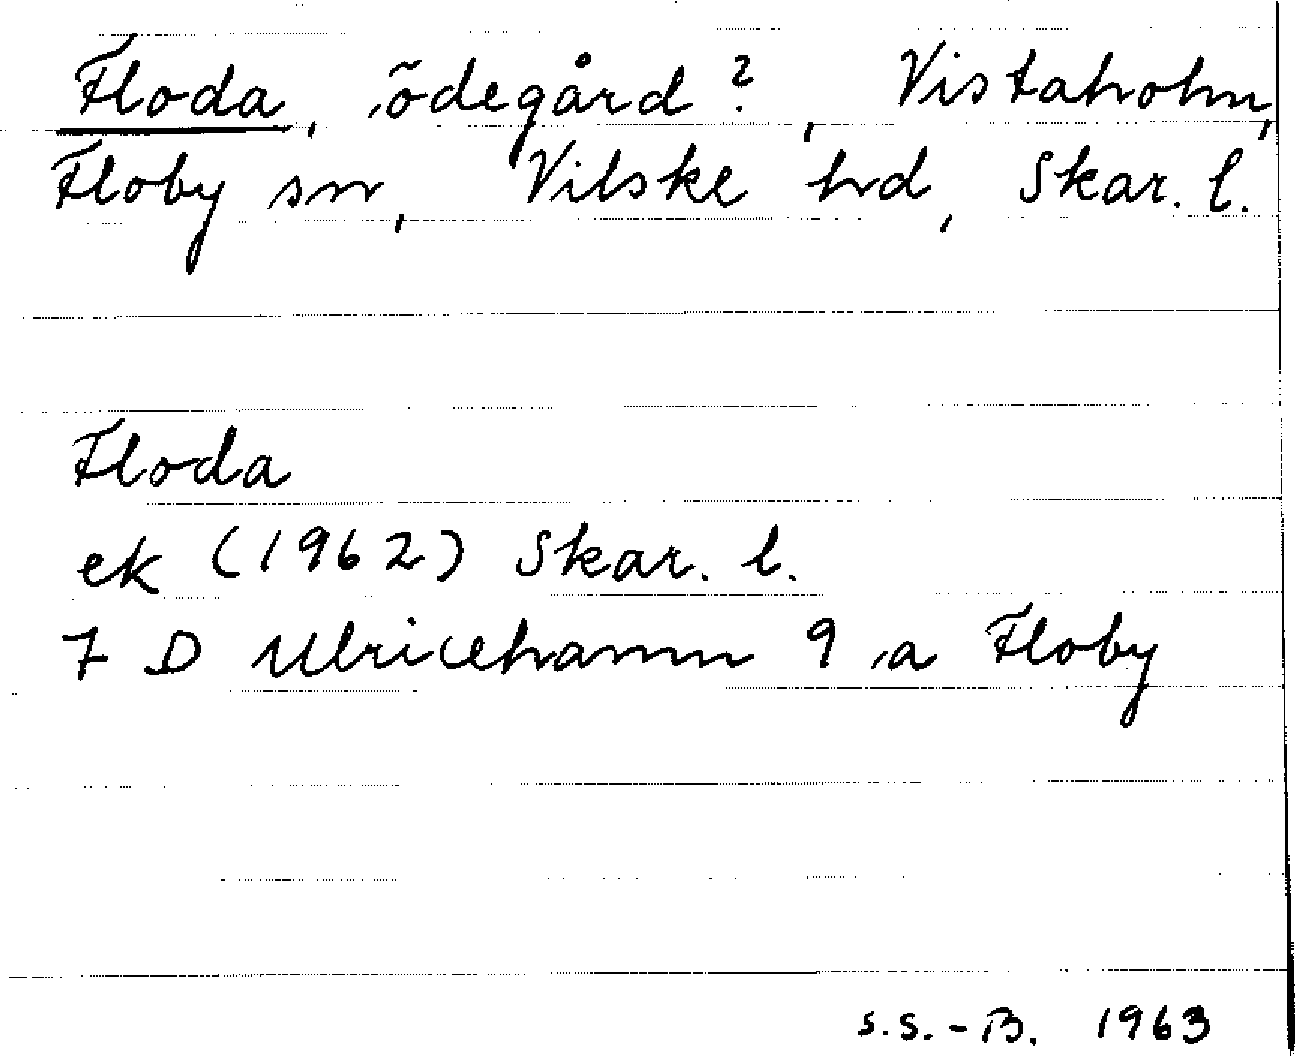 Floda, ödegård?, Vistaholm,
Floby sn, Vilske hd, Skar. l.
Floda
ek (1962) Skar. l.
7 D Ulricehamn 9 a Floby
S.S.-B. 1963